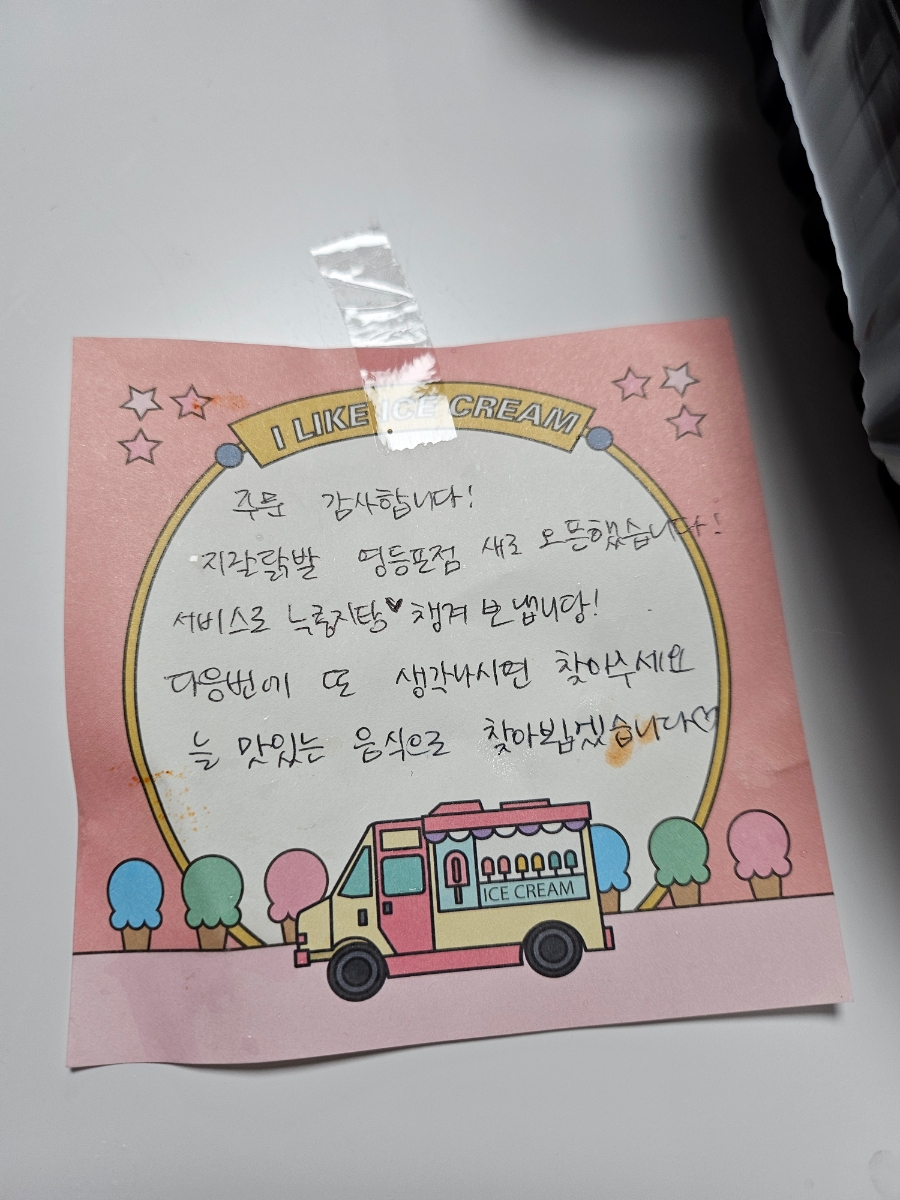 I LIKE ICE CREAM
주문 감사합니다!
지랄닭발 영등포점 새로 오픈했습니다!
서비스로 누룽지탕♥ 챙겨 보냅니당!
다음번에 또 생각나시면 찾아주세요
늘 맛있는 음식으로 찾아뵙겠습니다♡
ICE CREAM